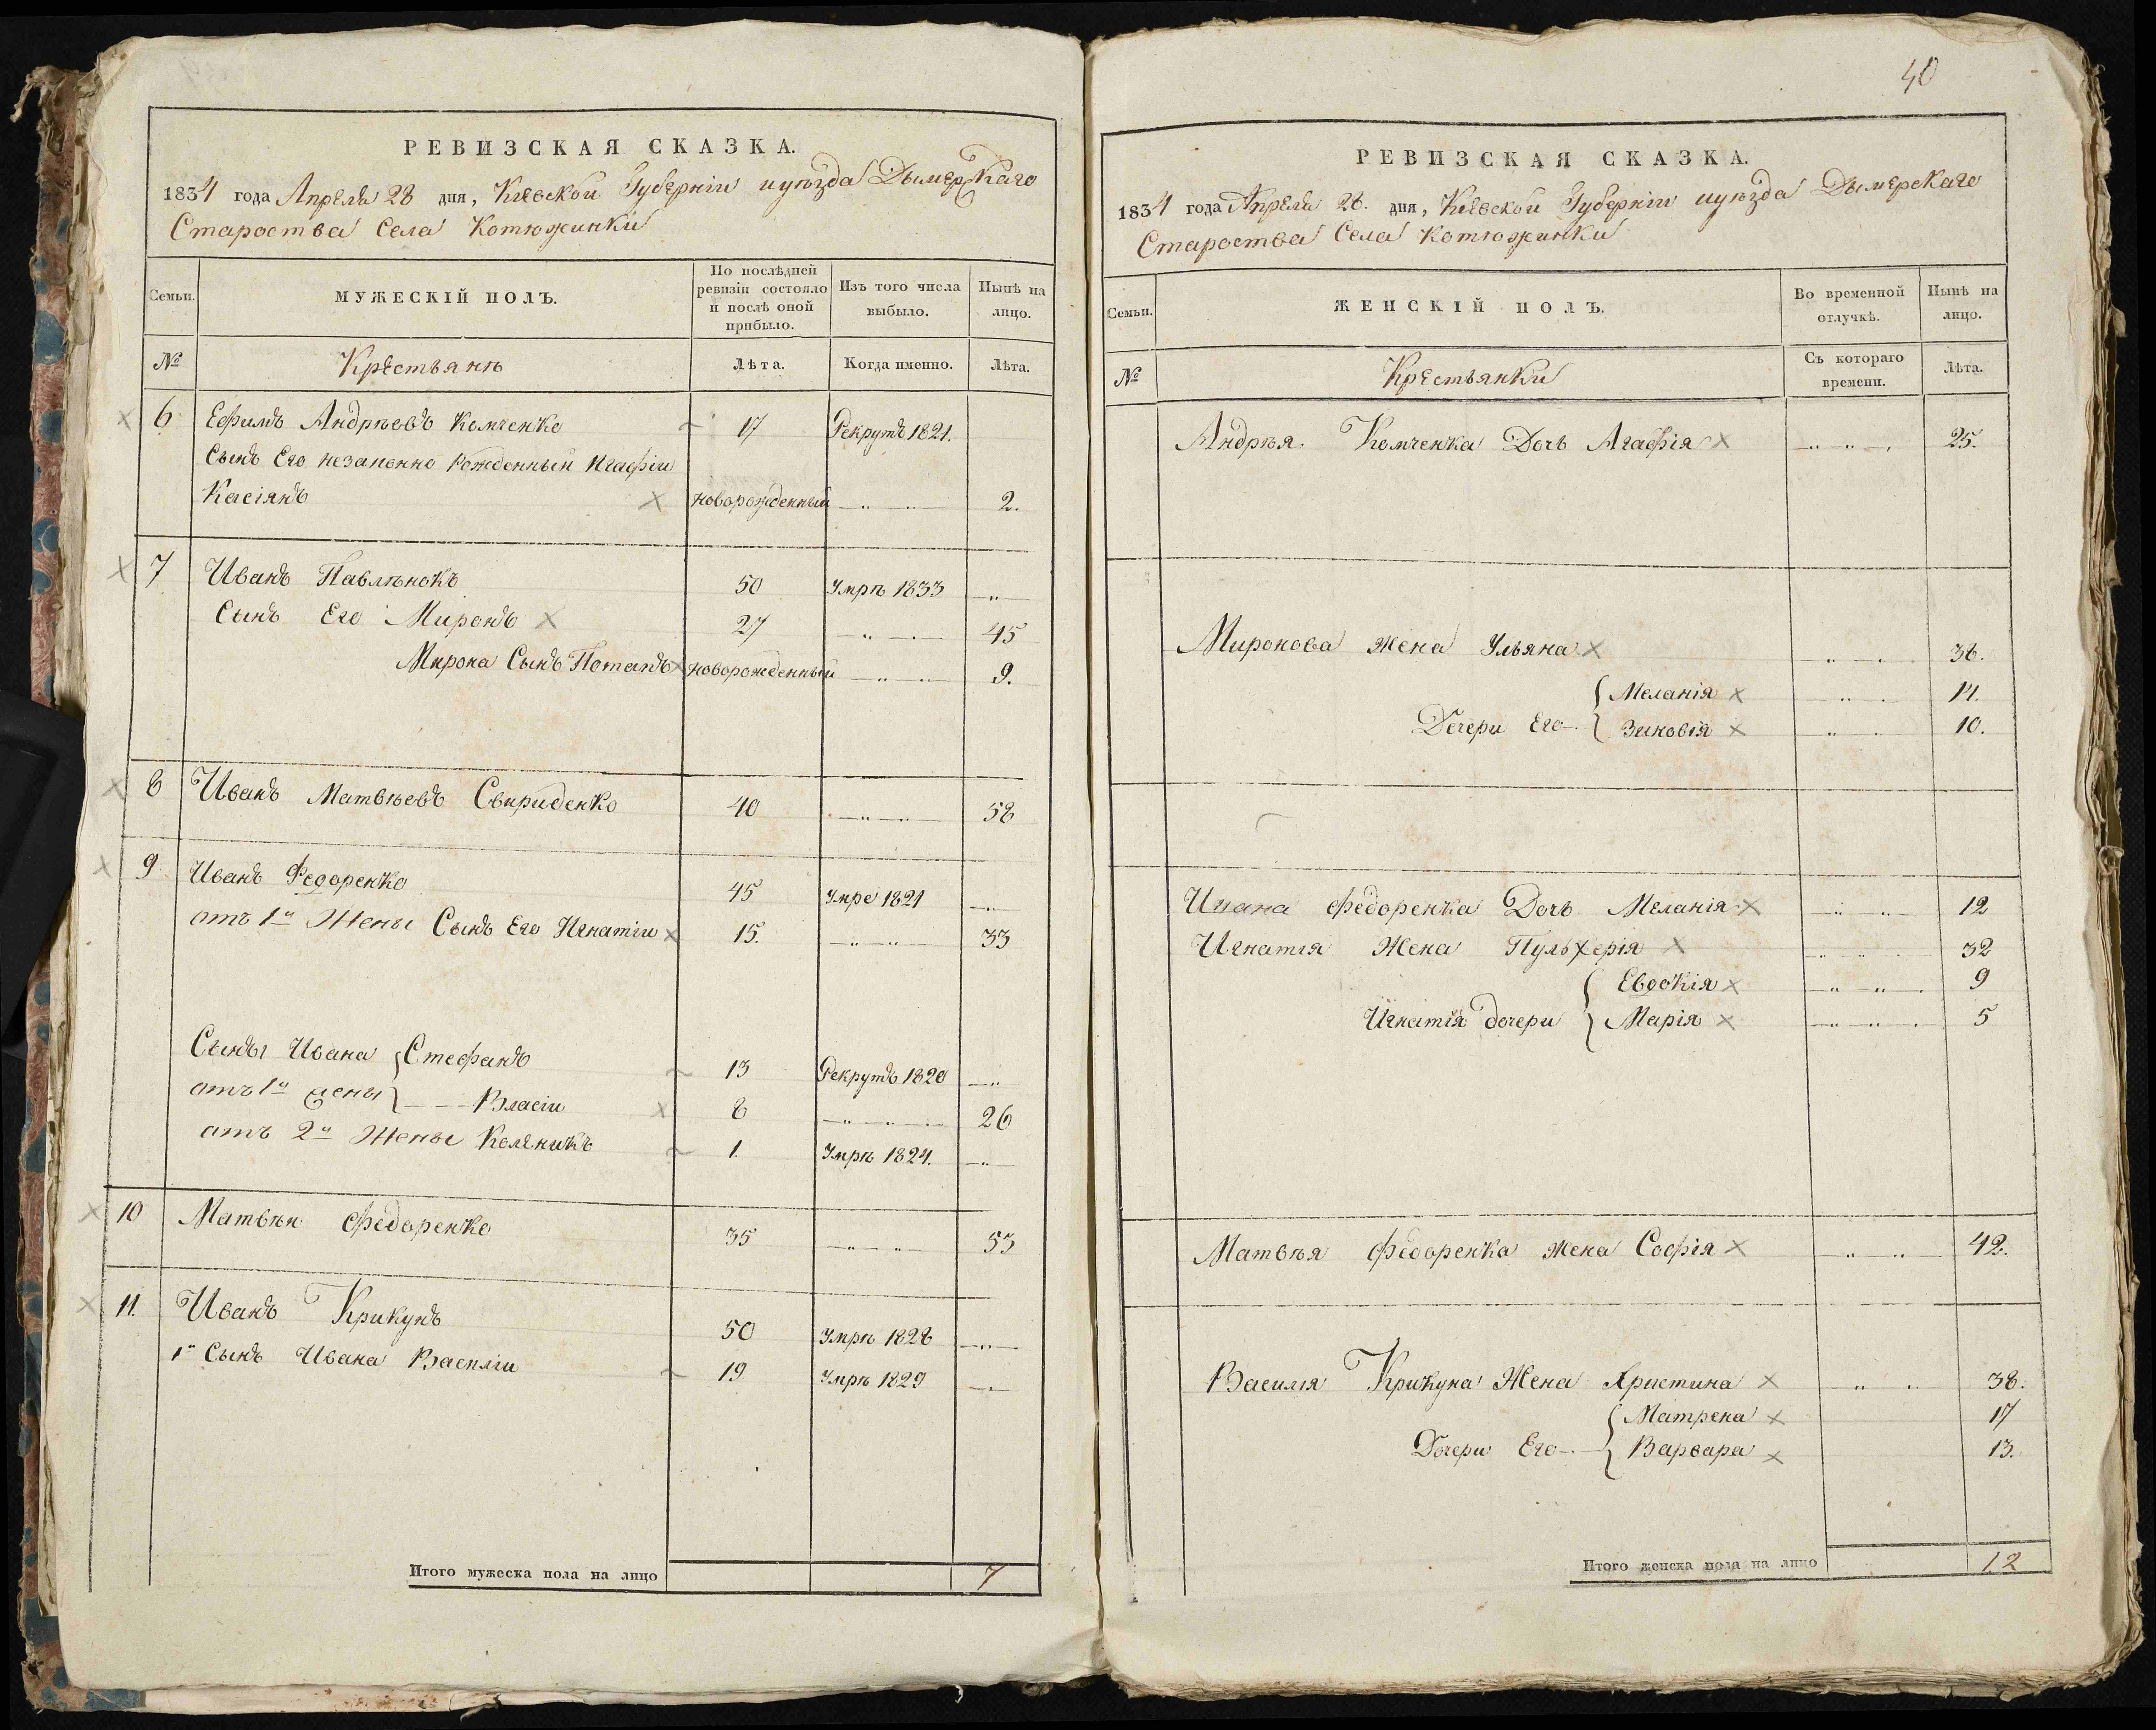 РЕВИЗСКАЯ СКАЗКА.
1834 года Апреля 28 дня, Кіевской Губерніи и уѣзда Дымерскаго
Староства Села Котюжинки
Семьи.
МУЖЕСКІЙ ПОЛЪ.
По послѣдней ревизіи состояло и послѣ оной прибыло.
Изъ того числа выбыло.
Нынѣ на лицо.
№
Крестьянѣ
Лѣта.
Когда именно.
Лѣта.
6 Ефимъ Андрѣевъ Комченко 17 Рекрутъ 1821.
Сынъ Его незаконно рожденный Агафіи
Касіянъ новорожденный 2.
7 Иванъ Павлѣнокъ 50 Умрѣ 1833
Сынъ Его Миронъ 27 45
Мирона Сынъ Потапъ новорожденный 9.
8 Иванъ Матвѣевъ Свириденко 40 58
9 Иванъ Федоренко 45 Умре 1821
отъ 1й Жены Сынъ Его Игнатіи 15. 33
Сыны Ивана Стефанъ 13 Рекрутъ 1820
отъ 1й жены Власіи 8 26
отъ 2й Жены Коленикъ 1. Умрѣ 1824.
10 Матвѣи Федоренко 35 53
11. Иванъ Крикунъ 50 Умрѣ 1828
1й Сынъ Ивана Василіи 19 Умрѣ 1829
Итого мужеска пола на лицо 7
40
РЕВИЗСКАЯ СКАЗКА.
1834 года Апреля 28. дня, Кіевской Губерніи и уѣзда Дымерскаго
Староства Села Котюжинки
Семьи.
ЖЕНСКІЙ ПОЛЪ.
Во временной отлучкѣ.
Нынѣ на лицо.
№
Крестьянки
Съ котораго времени.
Лѣта.
Андрѣя Комченка Дочь Агафія 25.
Миронова жена Ульяна 38.
Меланія 14.
Дочери Его Зиновія 10.
Ивана Федоренка Дочь Меланія 12
Игнатія Жена Пульхерія 32
Евдокія 9
Игнатія дочери Марія 5
Матвѣя Федоренка жена Софія 42.
Василія Крикуна Жена Христина 38.
Матрена 17
Дочери Его Варвара 13.
Итого женска пола на лицо 12